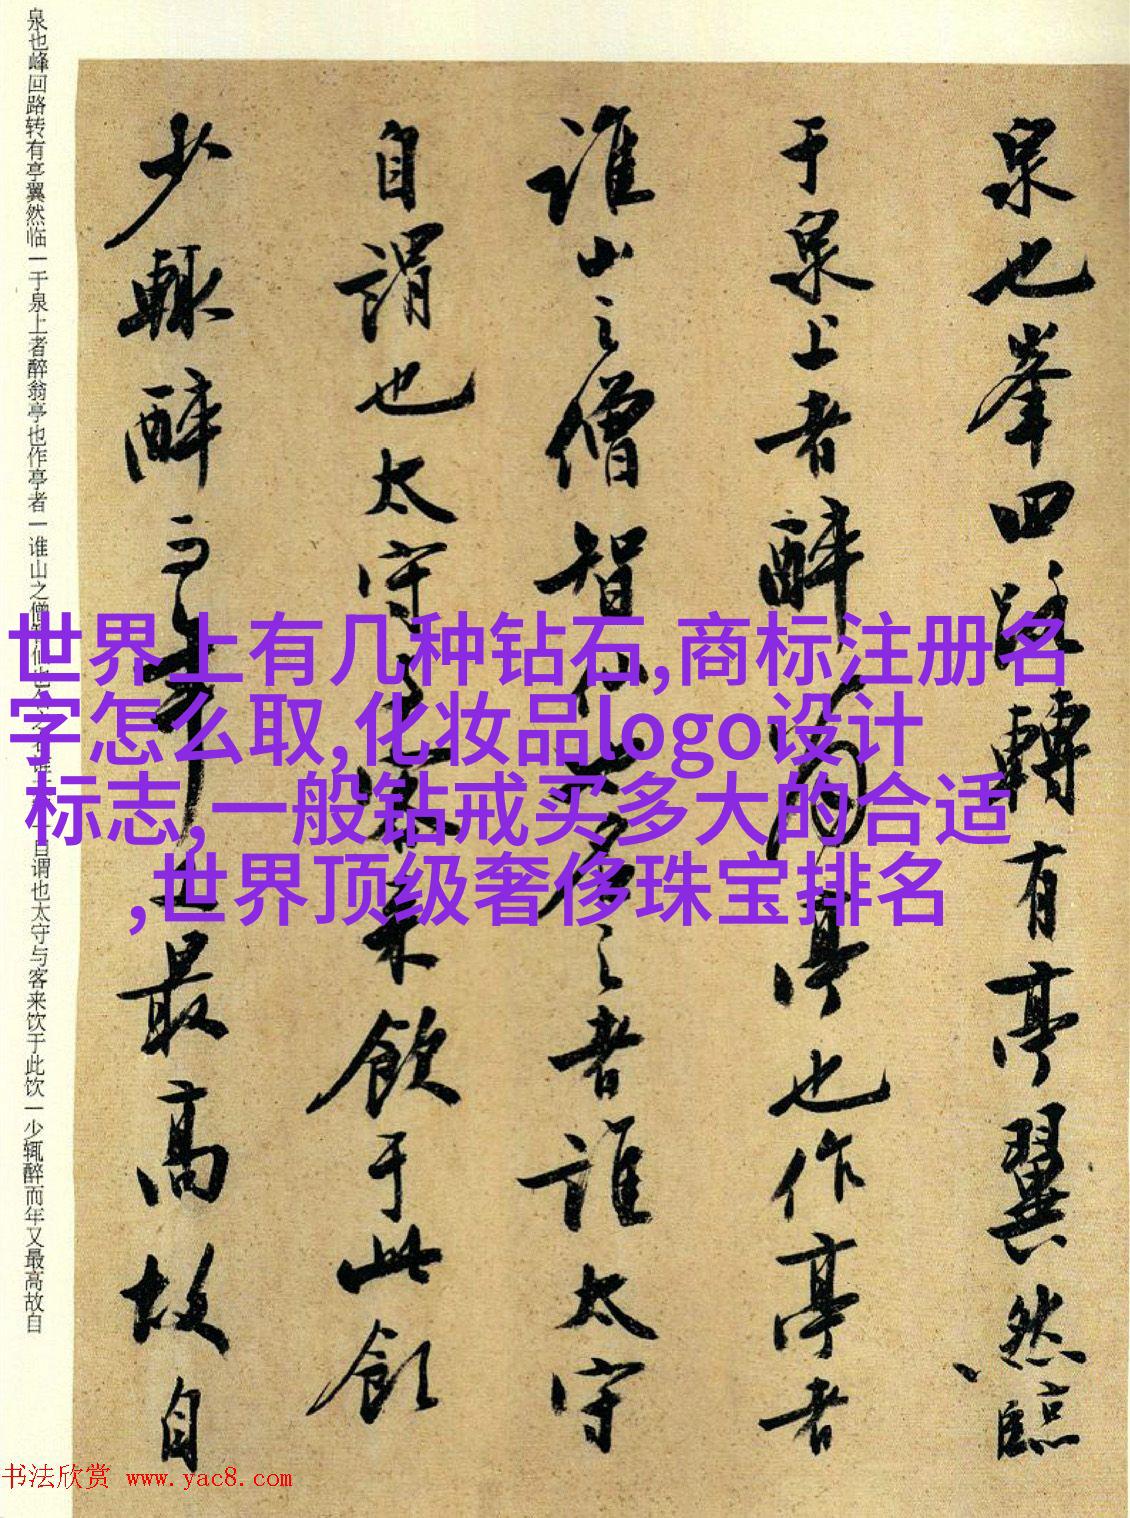 世界上有几种钻石,商标注册名
字怎么取,化妆品logo设计
标志,一般钻戒买多大的合适
,世界顶级奢侈珠宝排名
泉也峯回路轉有亭翼然臨
于泉上者醉翁亭也作亭者
誰山之僧智仙也名之者誰太守
自謂也太守與客來飲于此飲
少輒醉而年又最高故自
泉也峰回路转有亭翼然临一于泉上者醉翁亭也作亭者一谁山之僧智仙也名之者谁太守一自谓也太守与客来饮于此饮一少辄醉而年又最高故自
书法欣赏 www.yac8.com